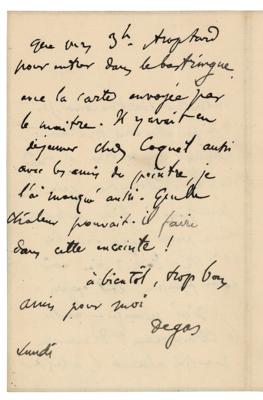 que vers 3h. trop tard
pour entrer dans le bastringue,
avec la carte envoyée par
le maître. Il y avait eu
déjeuner chez Coquet aussi
avec les amis du peintre, je
l'ai manqué aussi. Quelle
chaleur pouvait-il faire
dans cette enceinte !
à bientôt, trop bons
amis pour moi
Degas
Lundi